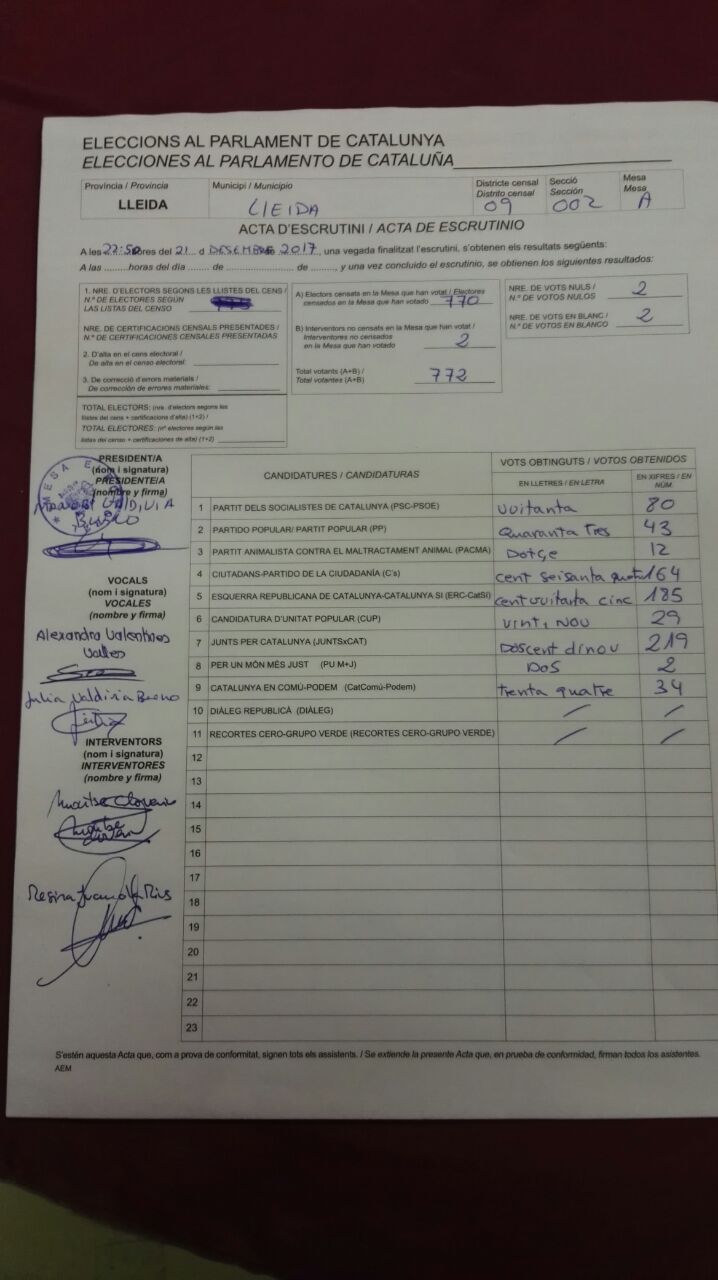 ELECCIONS AL PARLAMENT DE CATALUNYA
ELECCIONES AL PARLAMENTO DE CATALUÑA
Província / Provincia
LLEIDA
Municipi / Municipio
LLEIDA
Districte censal
Distrito censal
09
Secció
Sección
002
Mesa
Mesa
A
ACTA D'ESCRUTINI / ACTA DE ESCRUTINIO
A les 22:50 hores del 21 d DESEMBRE de 2017, una vegada finalitzat l'escrutini, s'obtenen els resultats següents:
A las .........horas del día ....... de .......................... de ........, y una vez concluido el escrutinio, se obtienen los siguientes resultados:
1. NRE. D'ELECTORS SEGONS LES LLISTES DEL CENS /
N.º DE ELECTORES SEGÚN
LAS LISTAS DEL CENSO
NRE. DE CERTIFICACIONS CENSALS PRESENTADES /
N.º DE CERTIFICACIONES CENSALES PRESENTADAS
2. D'alta en el cens electoral /
De alta en el censo electoral:
3. De correcció d'errors materials /
De corrección de errores materiales:
TOTAL ELECTORS: (nre. d'electors segons les
llistes del cens + certificacions d'alta) (1+2) /
TOTAL ELECTORES: (nº electores según las
listas del censo + certificaciones de alta) (1+2)
A) Electors censats en la Mesa que han votat / Electores
censados en la Mesa que han votado 770
B) Interventors no censats en la Mesa que han votat /
Interventores no censados
en la Mesa que han votado 2
Total votants (A+B) /
Total votantes (A+B) 772
NRE. DE VOTS NULS /
N.º DE VOTOS NULOS 2
NRE. DE VOTS EN BLANC /
N.º DE VOTOS EN BLANCO 2
PRESIDENT/A
(nom i signatura)
PRESIDENTE/A
(nombre y firma)
MESA E
VALDIVIA
VOCALS
(nom i signatura)
VOCALES
(nombre y firma)
Alexandra
Valles
Julia Valdivia Bueno
INTERVENTORS
(nom i signatura)
INTERVENTORES
(nombre y firma)
Regina Rius
CANDIDATURES / CANDIDATURAS
VOTS OBTINGUTS / VOTOS OBTENIDOS
EN LLETRES / EN LETRA
EN XIFRES / EN NÚM.
1 PARTIT DELS SOCIALISTES DE CATALUNYA (PSC-PSOE) vuitanta 80
2 PARTIDO POPULAR/ PARTIT POPULAR (PP) Quaranta tres 43
3 PARTIT ANIMALISTA CONTRA EL MALTRACTAMENT ANIMAL (PACMA) Dotge 12
4 CIUTADANS-PARTIDO DE LA CIUDADANÍA (C's) cent seisanta quatre 164
5 ESQUERRA REPUBLICANA DE CATALUNYA-CATALUNYA SÍ (ERC-CatSí) cent vuitanta cinc 185
6 CANDIDATURA D'UNITAT POPULAR (CUP) vint i nou 29
7 JUNTS PER CATALUNYA (JUNTSxCAT) Doscent dinou 219
8 PER UN MÓN MÉS JUST (PU M+J) DOS 2
9 CATALUNYA EN COMÚ-PODEM (CatComú-Podem) trenta quatre 34
10 DIÀLEG REPUBLICÀ (DIÀLEG) / /
11 RECORTES CERO-GRUPO VERDE (RECORTES CERO-GRUPO VERDE) / /
12
13
14
15
16
17
18
19
20
21
22
23
S'estén aquesta Acta que, com a prova de conformitat, signen tots els assistents. / Se extiende la presente Acta que, en prueba de conformidad, firman todos los asistentes.
AEM